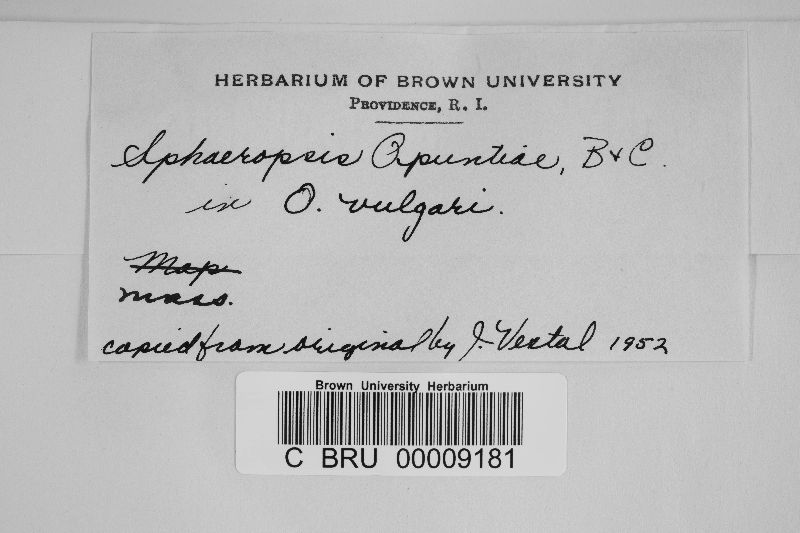 HERBARIUM OF BROWN UNIVERSITY
PROVIDENCE, R. I.
Sphaeropsis Opuntiae, B & C.
in O. vulgari.
Map
Mass.
copied from original by J. Vestal 1952
Brown University Herbarium
C BRU 00009181